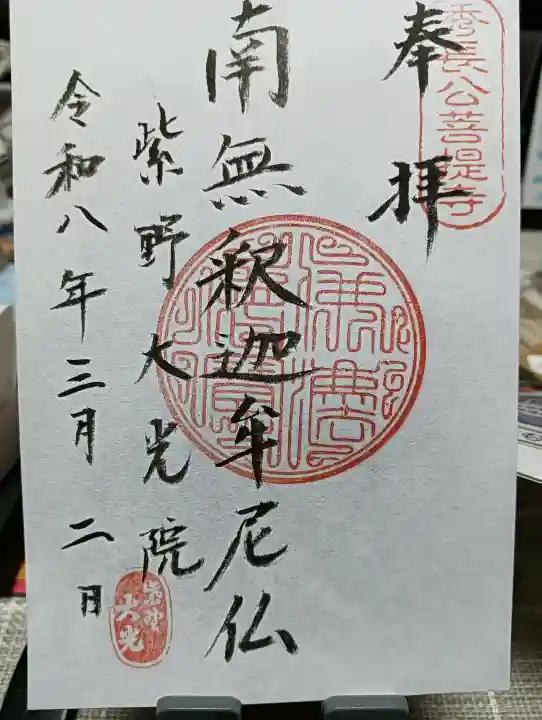 秀長公菩提寺
奉拝
南無釈迦牟尼仏
紫野大光院
令和八年三月二日